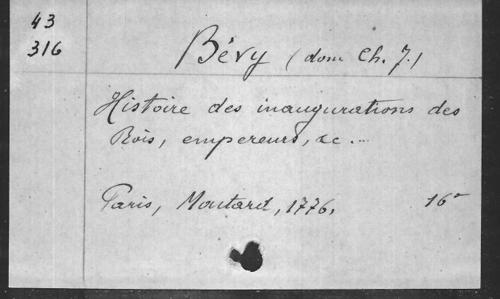 43
316
Bévy (dom Ch. J.)
Histoire des inaugurations des
Rois, empereurs, &c....
Paris, Moutard, 1776, 16°